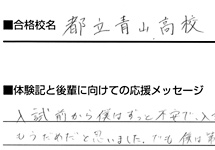 ■合格校名 都立青山高校
■体験記と後輩に向けての応援メッセージ
入試前から僕はずっと不安で、入
もうだめだと思いました。でも僕は第